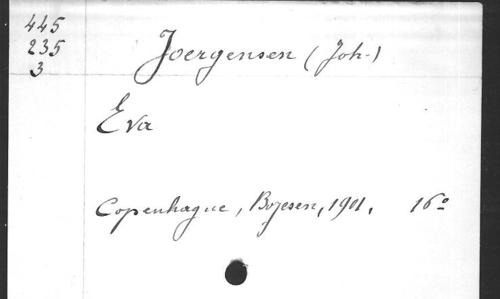 445
235
3
Joergensen (Joh.)
Eva
Copenhague, Bojesen, 1901. 16º